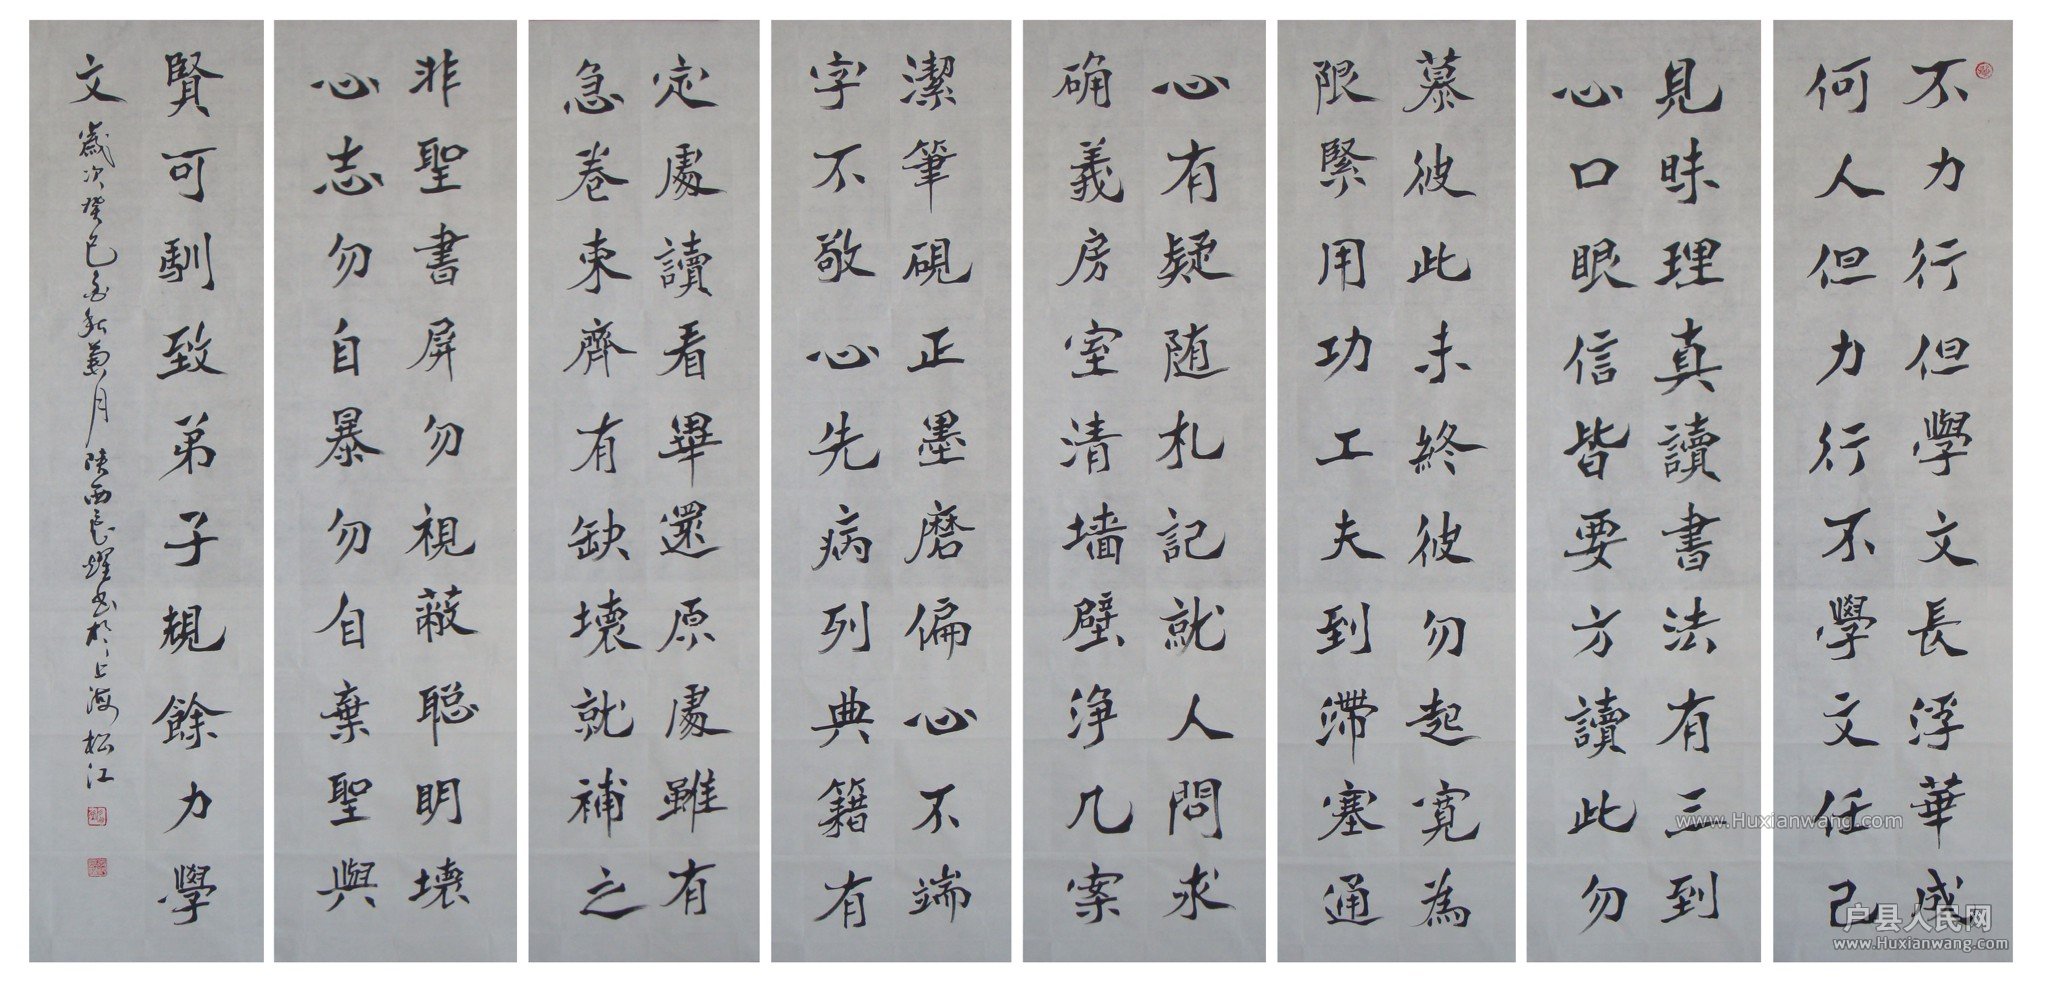 不力行但學文長浮華成
何人但力行不學文任己
見昧理真讀書法有三到
心口眼信皆要方讀此勿
慕彼此未終彼勿起寬為
限緊用功工夫到滯塞通
心有疑随札記就人問求
确義房室清墙壁净几案
潔筆硯正墨磨偏心不端
字不敬心先病列典籍有
定處讀看畢還原處雖有
急卷束齊有缺壞就補之
非聖書屏勿視蔽聪明壞
心志勿自暴勿自棄聖與
賢可馴致弟子規餘力學
文 歲次癸巳金秋菊月 陕西耀书於上海松江
www.Huxianwang.com
户县人民网
www.Huxianwang.com